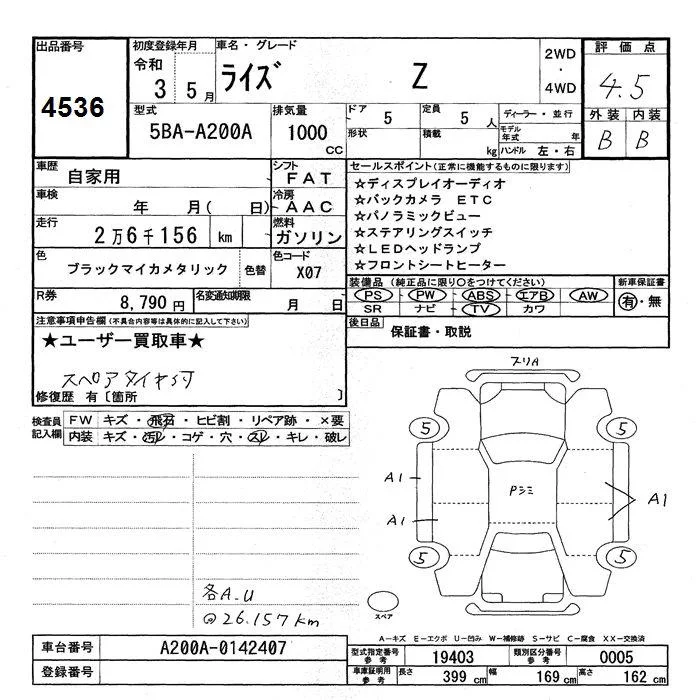 出品番号
4536
初度登録年月
令和
3 5月
車名・グレード
ライズ Z
2WD
・
4WD
評価点
4.5
外装 内装
B B
型式
5BA-A200A
排気量
1000 CC
ドア 5
定員 5 人
形状
積載 kg
ディーラー・並行
モデル年式 年
ハンドル 左・右
車歴
自家用
シフト
FAT
車検
年 月( 日)
冷房
AAC
走行
2万6千156 km
燃料
ガソリン
色
ブラックマイカメタリック
色替
色コード
X07
R券
8,790 円
名変通知期限
月 日
セールスポイント(正常に機能するものに限ります)
☆ディスプレイオーディオ
☆バックカメラ ETC
☆パノラミックビュー
☆ステアリングスイッチ
☆LEDヘッドランプ
☆フロントシートヒーター
装備品 (純正品に限り○をつけてください)
PS・PW・ABS・エアB・AW
SR ナビ・TV カワ
新車保証書
有・無
後日品
保証書・取説
注意事項申告欄(不具合内容等は具体的に記入して下さい)
★ユーザー買取車★
修復歴 有〔箇所 〕
検査員
記入欄
FW キズ・飛石・ヒビ割・リペア跡・×要
内装 キズ・汚レ・コゲ・穴・スレ・キレ・破レ
各A_U
@26.157km
5 5
A1
A1
A1
5 5
スペア
A-キズ E-エクボ U-凹み W-補修跡 S-サビ C-腐食 XX-交換済
車台番号
A200A-0142407
登録番号
型式指定番号
参考
19403
類別区分番号
参考
0005
車庫証明用
参考
長さ 399 cm
幅 169 cm
高さ 162 cm